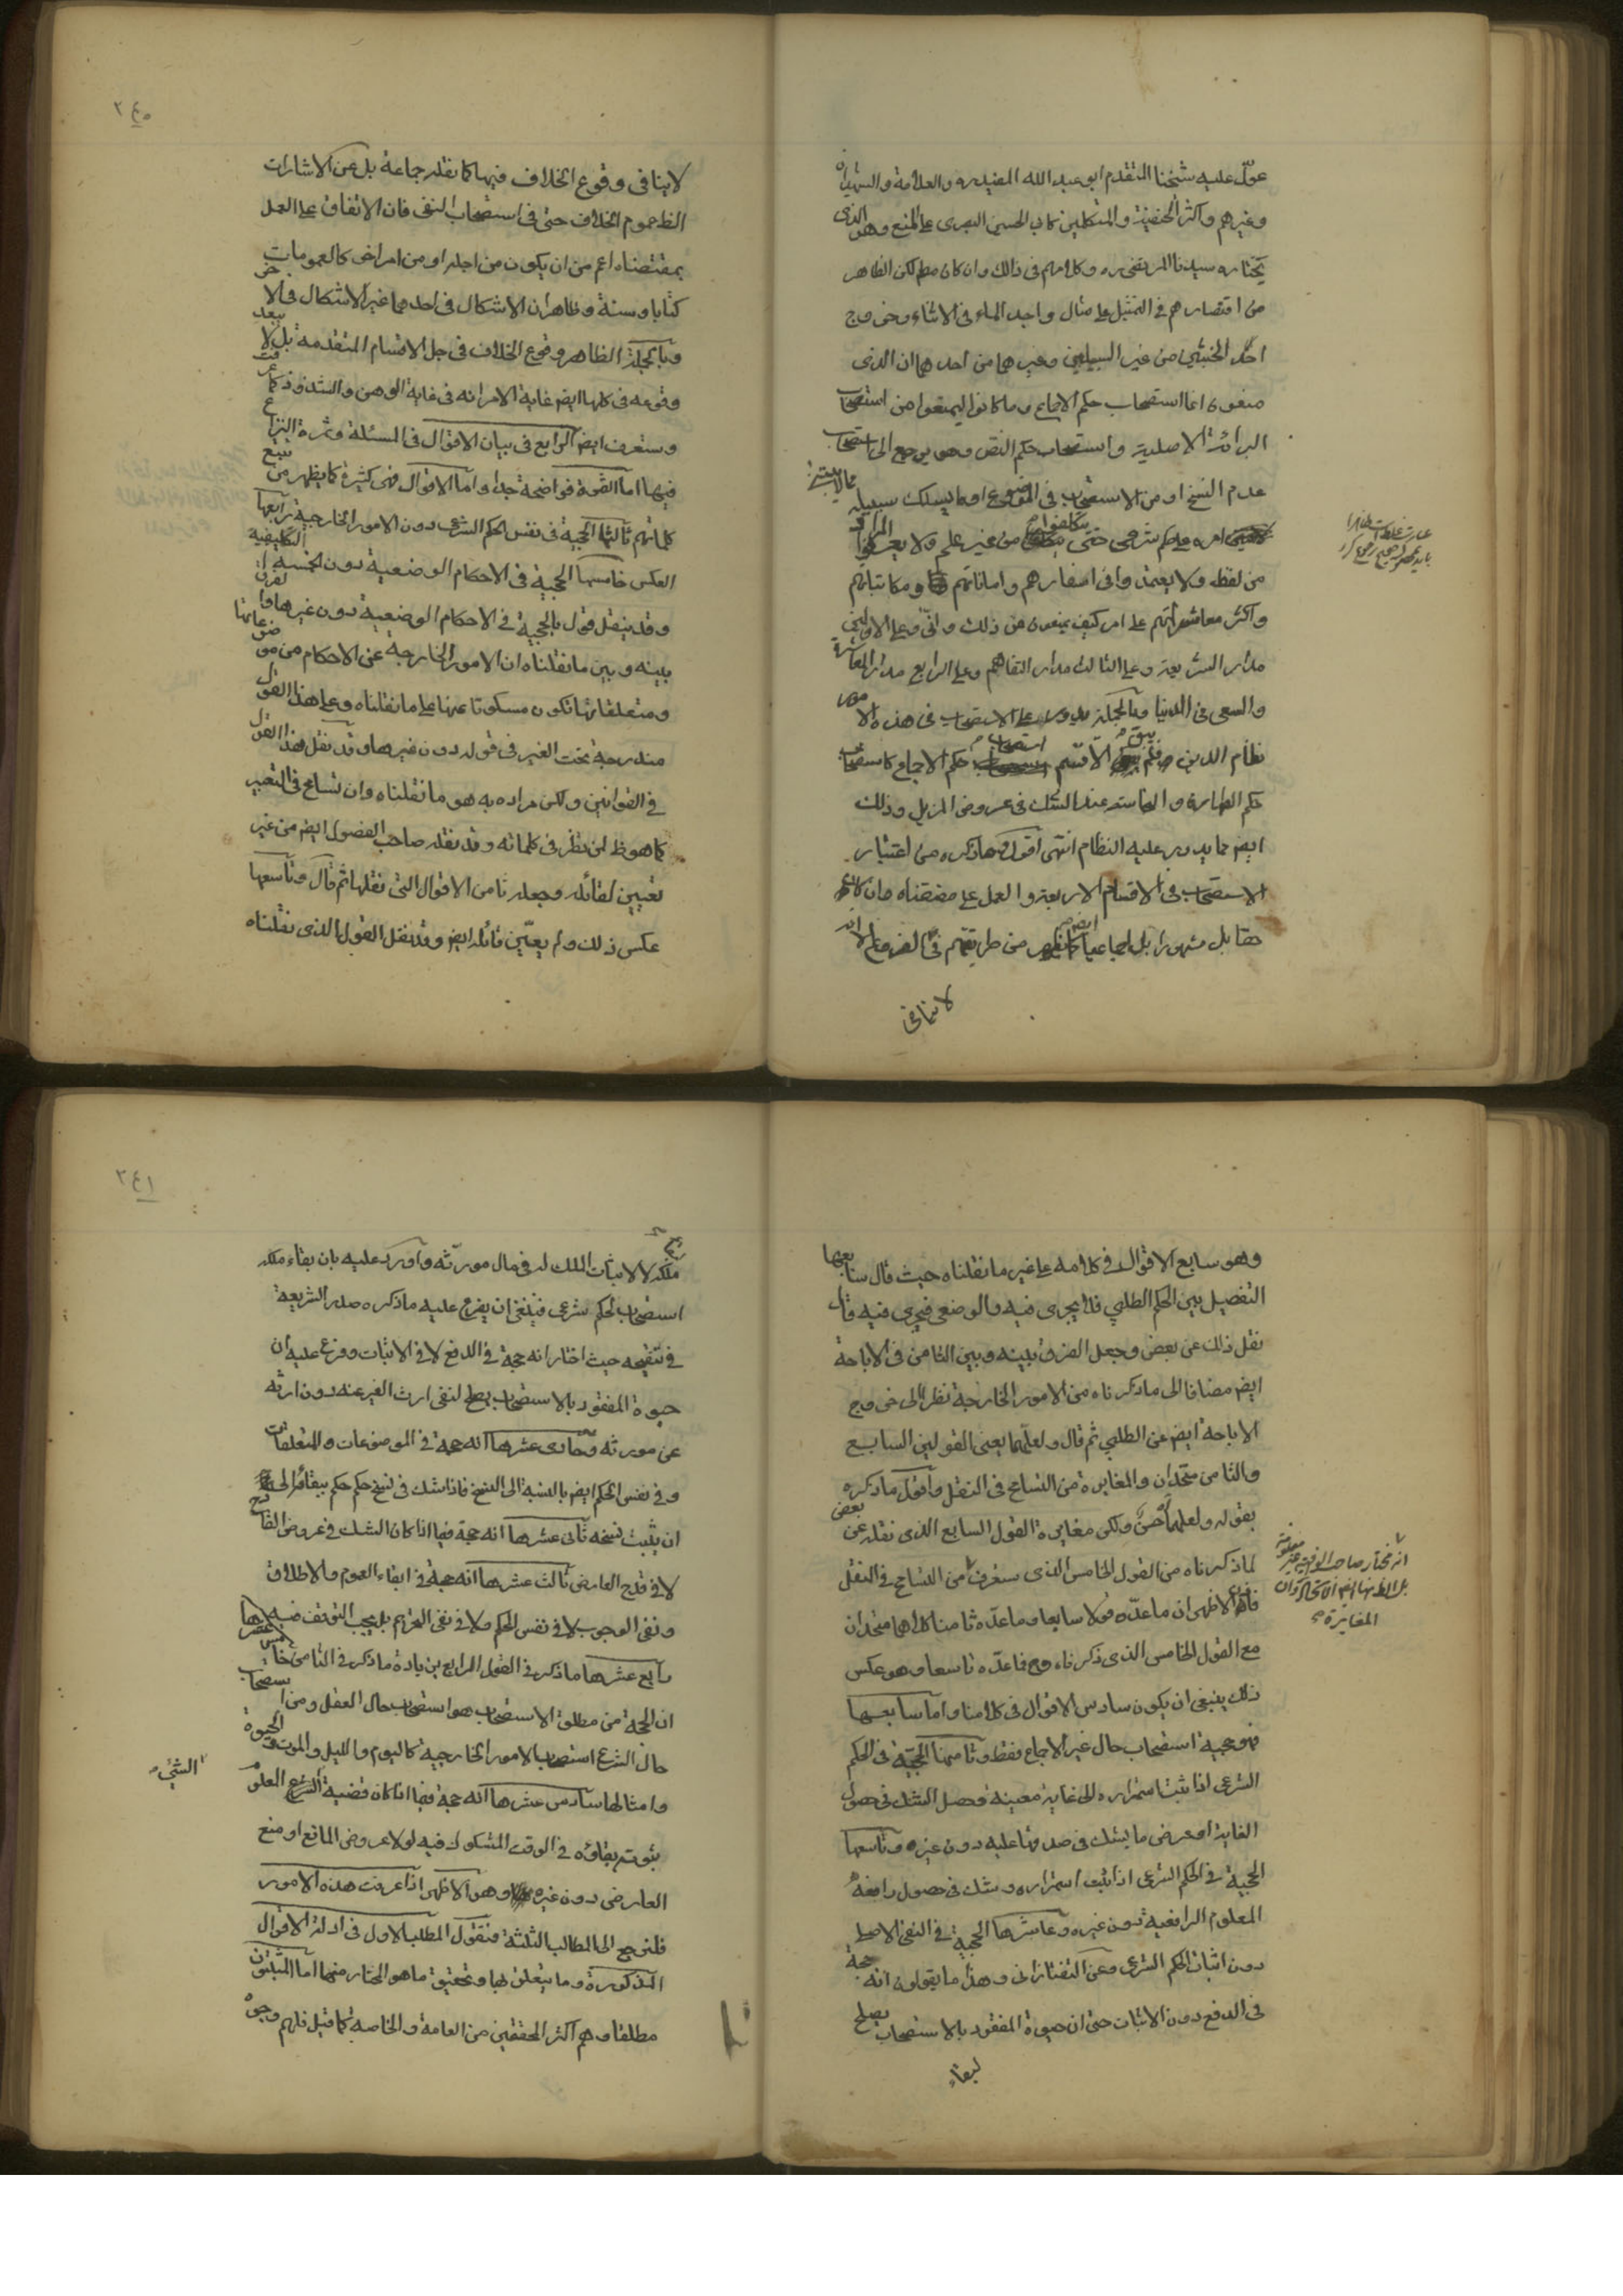 عوّل عليه شيخنا المتقدم ابو عبد الله المفيد ره والعلامة والشهيدان
وغيرهم واكثر الحنفية والمتكلمين كابي الحسين البصرى على المنع وهو الذى
يختاره سيدنا المرتضى ره وكلامهم فى ذلك وان كان مطم لكن الظاهر
من اقتصارهم فى التمثيل على مثال واجد الماء فى الاثناء وخروج
احد الخبثين من غير السبيلين وغيرهما من احدهما ان الذى
منعوه انما استصحاب حكم الاجماع وما كانوا ليمنعوا من استصحاب
البرائة الاصلية واستصحاب حكم النص وهو يرجع الى استصحاب
عدم النسخ او من الاستصحاب فى الموضوع او ما يسلك سبيله
امره على حكم شرعى حتى يتكلفوا من غير علم ولا يعرفوا المراد
من لفظ ولا يعتمدوا فى اسفارهم واماناتهم ومكاتباتهم
واكثر معاشراتهم على امر كيف يمنعون من ذلك وانّى وعلى الاولين
مدار الشريعة وعلى الثالث مدار التفاهم وعلى الرابع مدار المعاشرة
والسعى فى الدنيا وبالجملة يدور على الاستصحاب فى هذه الامور
نظام الدين فلم يبق الا قسم استصحاب حكم الاجماع كاستصحاب
حكم الطهارة والنجاسة عند الشك فى عروض المزيل وذلك
ايض مما يدور عليه النظام انتهى اقول وما ذكره من اعتبار
الاستصحاب فى الاقسام الاربعة والعمل على مقتضاه وان كان
حقا بل مشهورا بل اجماعيا ايض كما يظهر من طريقتهم فى الفروع الا انه
لا ينافى
٢٤٠
لا ينافى وقوع الخلاف فيها كما نقله جماعة بل عن الاشارات
الظ عموم الخلاف حتى فى استصحاب النفى فان الاتفاق على العمل
بمقتضاه اعم من ان يكون من اجله او من امر اخر كالعمومات
كتابا وسنة وظاهر ان الاشكال فى احدهما غير الاشكال فى الاخر
وبالجملة الظاهر وقوع الخلاف فى جل الاقسام المتقدمة بل لا يبعد
وقوعه فى كلها ايض غاية الامر انه فى غاية الوهن والشذوذ كما عرفت
وستعرف ايض الرابع فى بيان الاقوال فى المسئلة وثمرة النزاع
فيها اما الثمرة فواضحة جدا واما الاقوال فهى كثيرة كما يظهر من تتبع
كلماتهم ثالثها الحجية فى نفس الحكم الشرعى دون الامور الخارجية رابعها
العكس خامسها الحجية فى الاحكام الوضعية دون التكليفية
وقد ينقل قول بالحجية فى الاحكام الوضعية دون غيرها والفرق
بينه وبين ما نقلناه ان الامور الخارجة عن الاحكام من موضوعاتها
ومتعلقاتها تكون مسكوتا عنها على ما نقلناه وعلى هذا القول
مندرجة تحت الغير فى قوله دون غيرها وقد نقل هذا القول
فى القوانين ولكن مراده به هو ما نقلناه وان تسامح فى التعبير
كما هو ظ لمن نظر فى كلماته وقد نقله صاحب الفصول ايض من غير
تعيين لقائله وجعله ثامن الاقوال التى نقلها ثم قال وتاسعها
عكس ذلك ولم يعيّن قائله ايض وقد نقل القول الذى نقلناه
وهو سابع الاقوال فى كلامه على غير ما نقلناه حيث قال سابعها
التفصيل بين الحكم الطلبي فلا يجرى فيه والوضعى فيجرى فيه قال
نقل ذلك عن بعض وجعل الفرق بينه وبين الثامن فى الاباحة
ايض مضافا الى ما ذكرناه من الامور الخارجة نظرا الى خروج
الاباحة ايض عن الطلبي ثم قال ولعلهما يعنى القولين السابع
والثامن متحدان والمغايرة من التسامح فى النقل واقول ما ذكره
بقوله ولعلهما حسن ولكن مغايرة القول السابع الذى نقله عن بعض
لما ذكرناه من القول الخامس الذى ستعرف من التسامح فى النقل
فالاظهر ان ما عدّه قولا سابعا وما عدّه ثامنا كلاهما متحدان
مع القول الخامس الذى ذكرناه وح فما عدّه تاسعا وهو عكس
ذلك ينبغى ان يكون سادس الاقوال فى كلامنا واما سابعها
فهو حجية استصحاب حال غير الاجماع فقط وثامنها الحجية فى الحكم
الشرعى اذا ثبت استمراره الى غاية معينة وحصل الشك فى حصول
الغاية او عرض ما يشك فى صدقها عليه دون غيره وتاسعها
الحجية فى الحكم الشرعى اذا ثبت استمراره وشك فى حصول رافعه
المعلوم الرافعية دون غيره وعاشرها الحجية فى النفى الاصلى
دون اثبات الحكم الشرعى وعن التفتازانى وهذا ما يقولون انه حجة
فى الدفع دون الاثبات حتى ان حيوة المفقود بالاستصحاب يصلح
لبقاء
٢٤١
ملكه لا لاثبات الملك له فى مال مورثه واورد عليه بان بقاء ملكه
استصحاب لحكم شرعى فينبغى ان يفرع عليه ما ذكره صدر الشريعة
فى تنقيحه حيث اختار انه حجة فى الدفع لا فى الاثبات وفرع عليه ان
حيوة المفقود بالاستصحاب يصلح لنفى ارث الغير عنه دون ارثه
عن مورثه وحادى عشرها انه حجة فى الموضوعات والمتعلقات
وفى نفس الحكم ايض بالنسبة الى النسخ فاذا شك فى نسخ حكم حكم ببقائه الى
ان يثبت نسخه ثانى عشرها انه حجة فيما اذا كان الشك فى عروض القادح
لا فى قدح العارض ثالث عشرها انه حجة فى ابقاء العموم والاطلاق
ونفى الوجوب لا فى نفس الحكم ولا فى نفى التحريم بل يجب التوقف فيه
رابع عشرها ما ذكر فى القول الرابع بزيادة ما ذكر فى الثامن خامس عشرها
ان الحجة من مطلق الاستصحاب هو استصحاب حال العقل ومن استصحاب
حال الشرع استصحاب الامور الخارجية كاليوم والليل والموت والحيوة
وامثالها سادس عشرها انه حجة فيما اذا كان قضية الشئ المعلوم
ثبوته بقاؤه فى الوقت المشكوك فيه لولا عروض المانع او منع
العارض دون غيره وهو الاظهر اذا عرفت هذه الامور
فلنرجع الى المطالب الثلثة فنقول المطلب الاول فى ادلة الاقوال
المذكورة وما يتعلق بها وتحقيق ما هو المختار منها اما المثبتون
مطلقا وهم اكثر المحققين من العامة والخاصة كما قيل فلهم وجوه